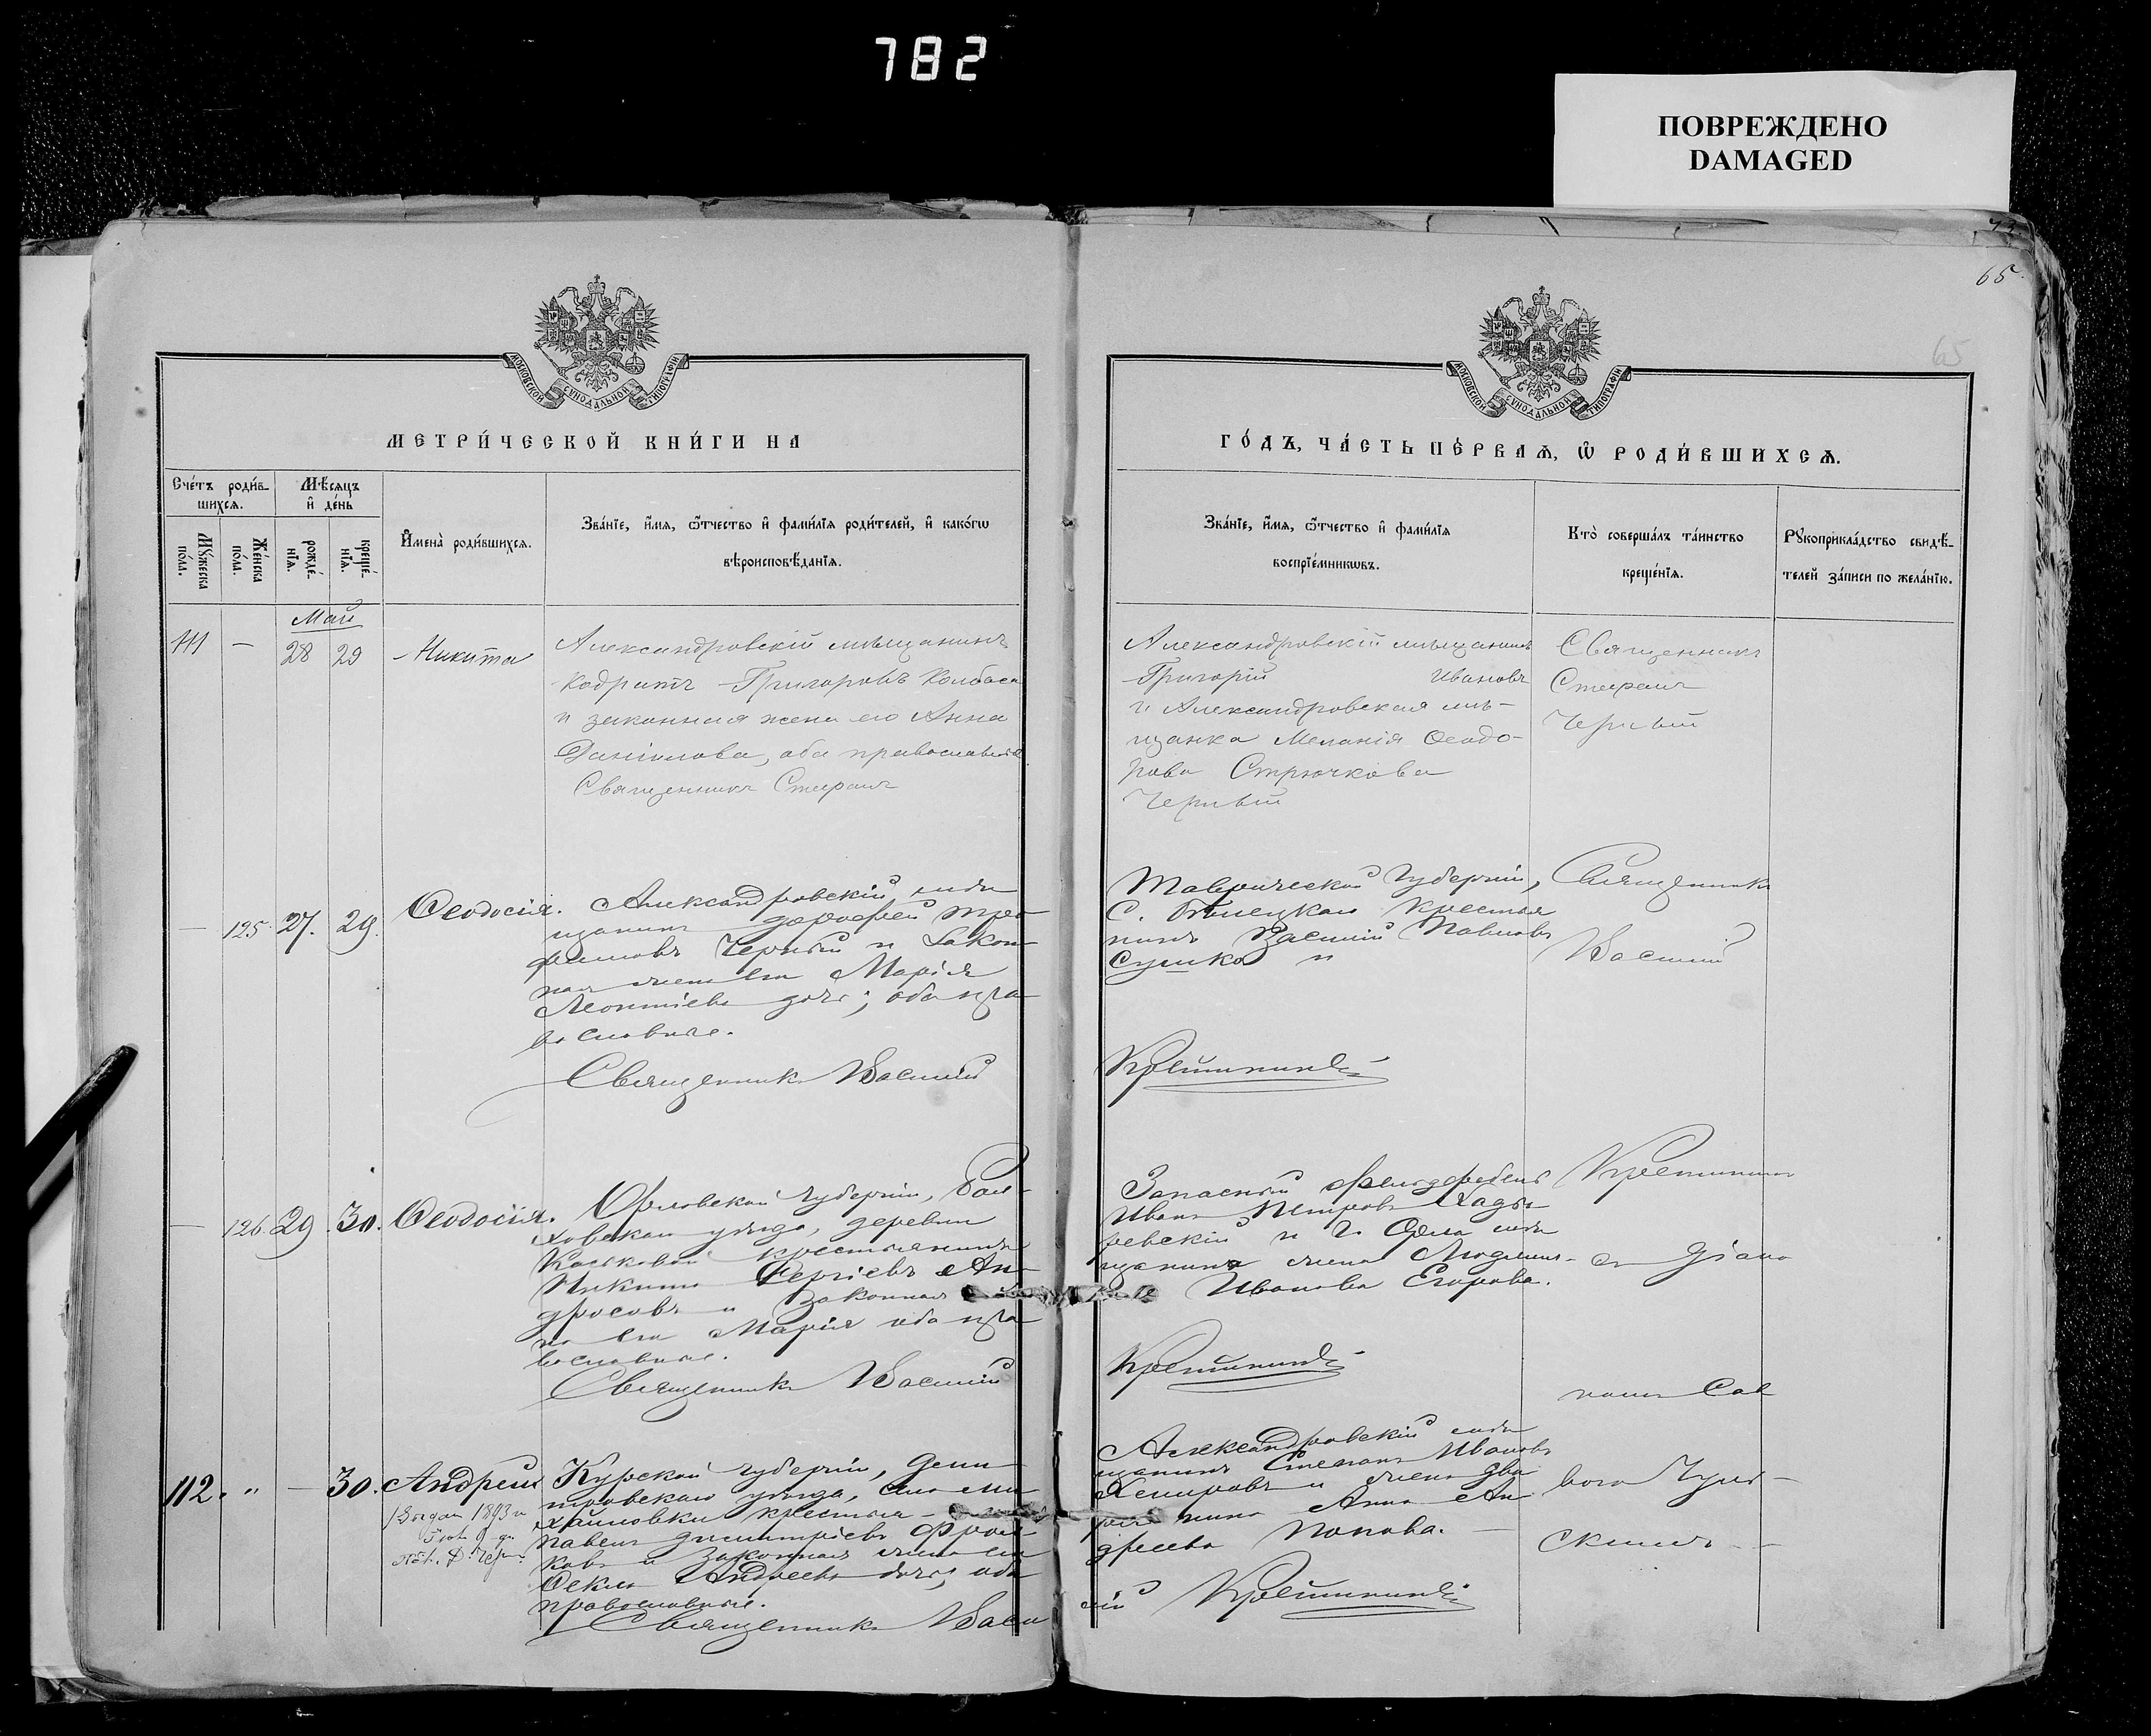 782
ПОВРЕЖДЕНО
DAMAGED
72.
65.
65
МОСКОВСКОЙ СѴНОДАЛЬНОЙ ТИПОГРАФІИ
МОСКОВСКОЙ СѴНОДАЛЬНОЙ ТИПОГРАФІИ
МЕТРИ́ЧЕСКОЙ КНИ́ГИ НА
ГО́ДЪ, ЧА́СТЬ ПЕ́РВАѦ, Ѡ҆ РОДИ́ВШИХСѦ.
Сче́тъ роди́в-
шихсѧ.
Мѣ́сѧцъ
и҆ де́нь
Мꙋ́жеска
по́ла.
Же́нска
по́ла.
рожде́-
нїѧ.
креще́-
нїѧ.
И҆мена̀ роди́вшихсѧ.
Зва́нїе, и҆́мѧ, ѻ҆́тчество и҆ фами́лїѧ роди́телей, и҆ како́гѡ
вѣроисповѣ́данїѧ.
Зва́нїе, и҆́мѧ, ѻ҆́тчество и҆ фами́лїѧ
воспрїе́мникѡвъ.
Кто̀ соверша́лъ та́инство
креще́нїѧ.
Рꙋкоприкла́дство свидѣ́-
телей за́писи по жела́нїю.
Май
111 — 28 29 Никита
Александровскій мѣщанинъ
Кодратъ Григоровъ Колбаса
и законная жена его Анна
Даніилова, оба православные
Священникъ Стефанъ
Александровскій мѣщанинъ
Григорій Ивановъ
и Александровская мѣ-
щанка Меланія Ѳеодо-
рова Стрючкова
Черный
Священникъ
Стефанъ
Черный
— 125. 27. 29. Ѳеодосія.
Александровскій мѣ-
щанинъ Дорофей Тро-
фимовъ Черный и закон-
ная жена его Марія
Леонтіева дочь; оба пра-
вославные.
Священникъ Василій
Таврической губерніи,
С. Бѣлецкаго крестья
нинъ Василій Павловъ
Сушко и
Крейтининъ
Священникъ
Василій
— 126. 29. 30. Ѳеодосія.
Орловской губерніи, Бол-
ховскаго уѣзда, деревни
крестьянинъ
Никита Сергіевъ Ан-
дросовъ и законная
на его Марія оба пра-
вославные.
Священникъ Василій
Запасный фельдфебель
Иванъ Петровъ
ревскій и г. Орла мѣ-
щанина жена
Иванова Егорова.
Крейтининъ
Крейтининъ
съ Діако
номъ Сав
112. " — 30. Андрей
Курской губерніи, Дми-
тровскаго уѣзда, села Ми-
хайловки крестья-
Павелъ Димитріевъ Фрол-
ковъ и законная жена его
Ѳекла Андреева дочь, оба
православные.
Священникъ Васи
Александровскій мѣ-
щанинъ Степанъ Ивановъ
и жена дво
рянина Анна Ан
дреева Попова.
лій Крейтининъ
вою Чулов-
скимъ